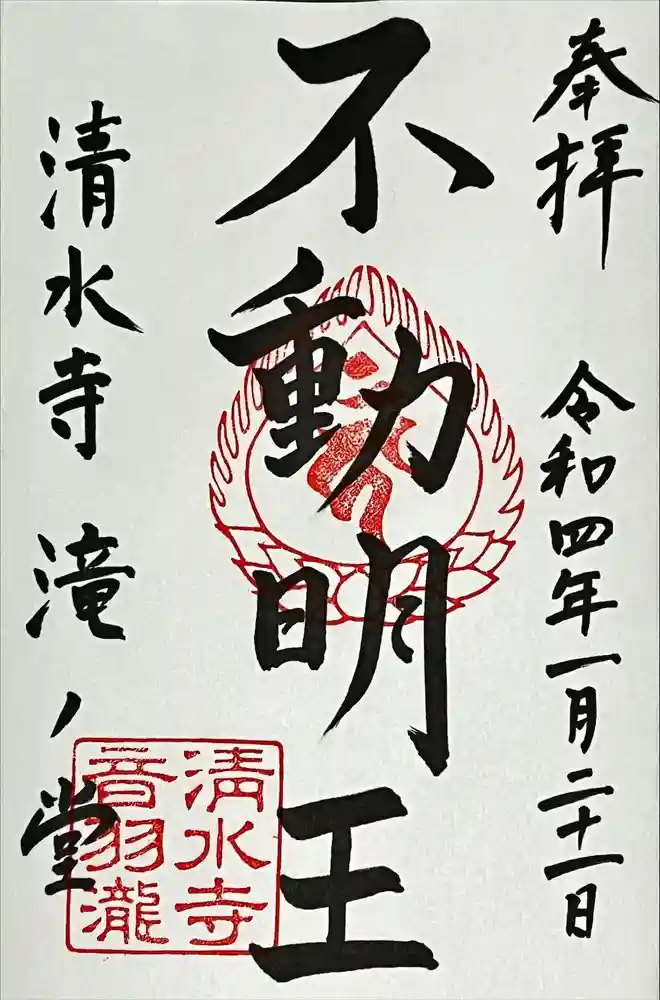 奉拝 令和四年一月二十一日
不動明王
清水寺 滝ノ堂
清水寺
音羽瀧